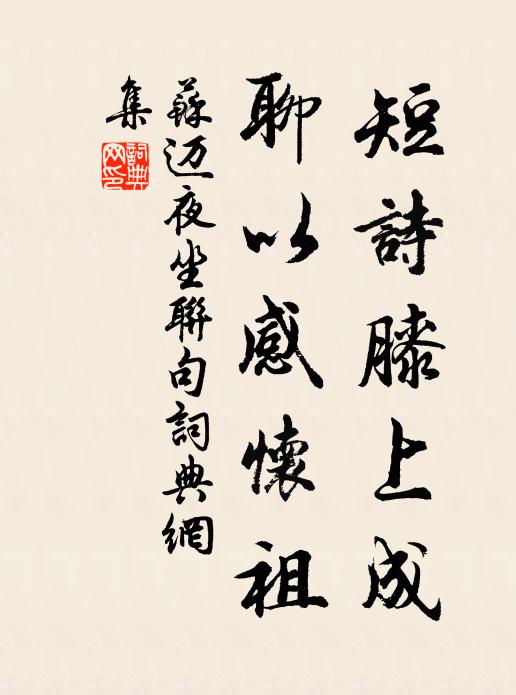 短詩膝上成
聊以感懷祖
蘇迈夜坐聯句詞典網
集
詞典网印